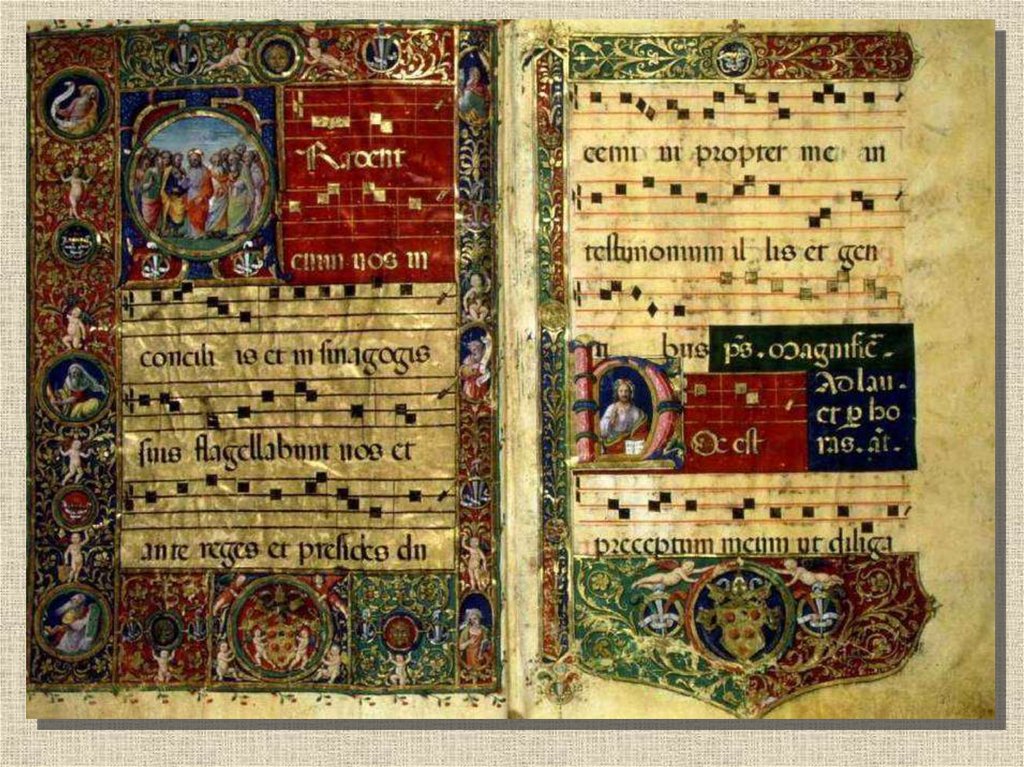 Radent
enim uos in
concili is et in sinagogis
suis flagellabunt uos et
ante reges et presides du
cemi ni propter me in
testimonium il lis et gen
bus p̄s. Magnific̄.
Ad lau.
et ꝑ ho
ras. añ.
Oc est
preceptum meum ut diliga